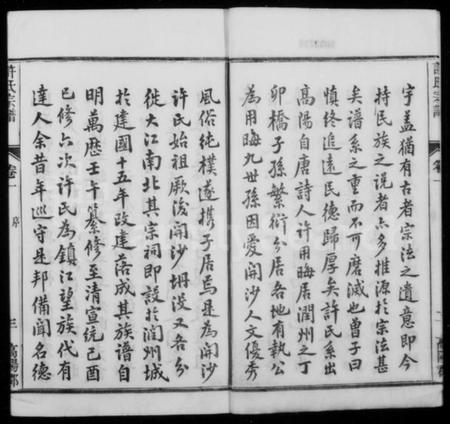 許氏宗譜
卷一
宇蓋猶有古者宗法之遺意即今
持民族之說者亦多推源於宗法甚
矣譜系之重而不可磨滅也曾子曰
慎終追遠民德歸厚矣許氏系出
高陽自唐詩人許用晦居潤州之丁
卯橋子孫繁衍分居各地有執公
為用晦九世孫因愛開沙人文優秀
風俗純樸遂攜子居焉是為開沙
許氏始祖厥後開沙坍沒又各分
徙大江南北其宗祠即設於潤州城
於建國十五年改建落成其族譜自
明萬歷壬午纂修至清宣統己酉
已修六次許氏為鎮江望族代有
達人余昔年巡守是邦備聞名德
許氏宗譜
卷一
序
三
高陽郡